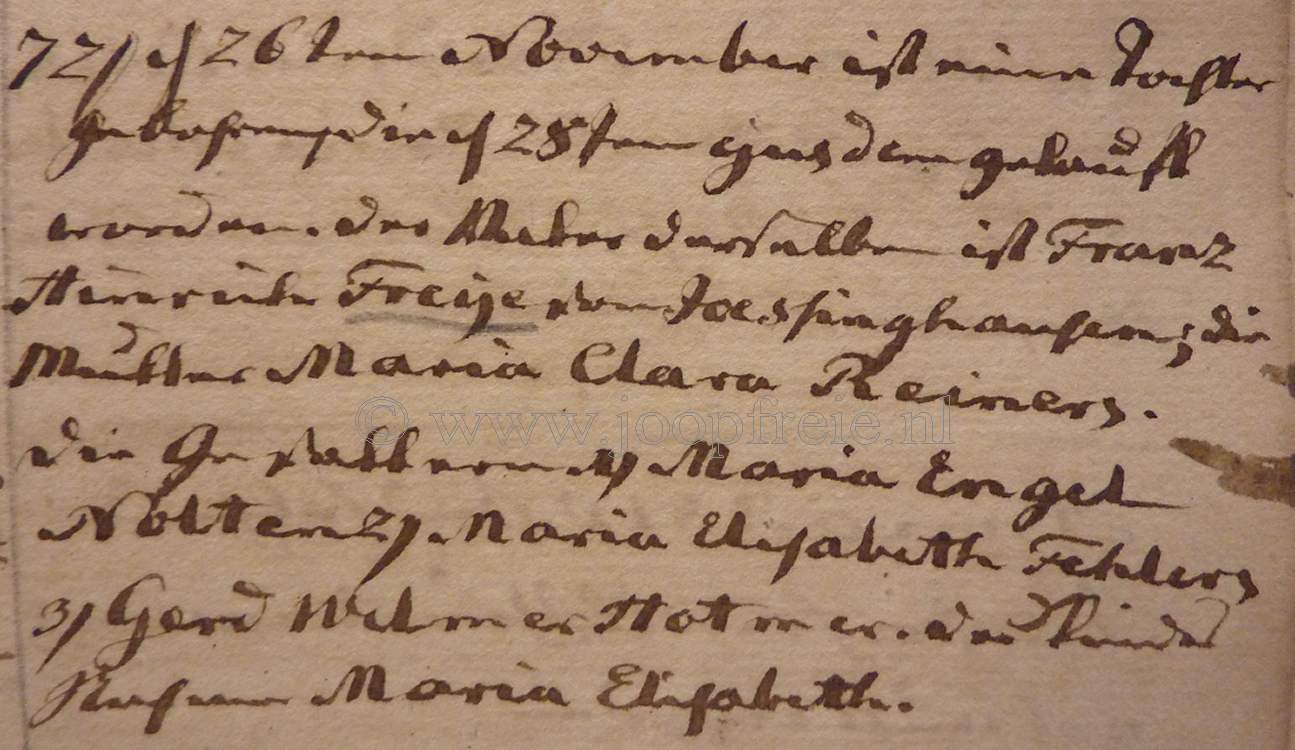 72) d 26ten November ist eine Tochter
gebohren, die d 28ten ejusdem getauft
worden. der Vater derselben ist Franz
Hinrich Freije von Joessinghausen; die
Mutter Maria Clara Reiners.
© www.joopfreie.nl
die Gevattern 1) Maria Engel
Nolten 2) Maria Elisabeth Fehlers
3) Gerd Wilmer Hotmer. des Kindes
Nahme Maria Elisabeth.